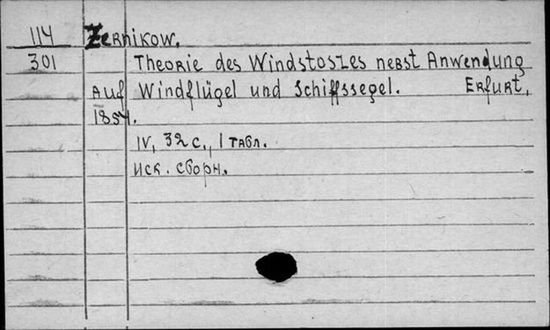 114 Zernikow.
301 Theorie des Windstosses nebst Anwendung
auf Windflügel und Schiffssegel. Erfurt,
1854.
IV, 32 с., 1 табл.
Иск. сборн.